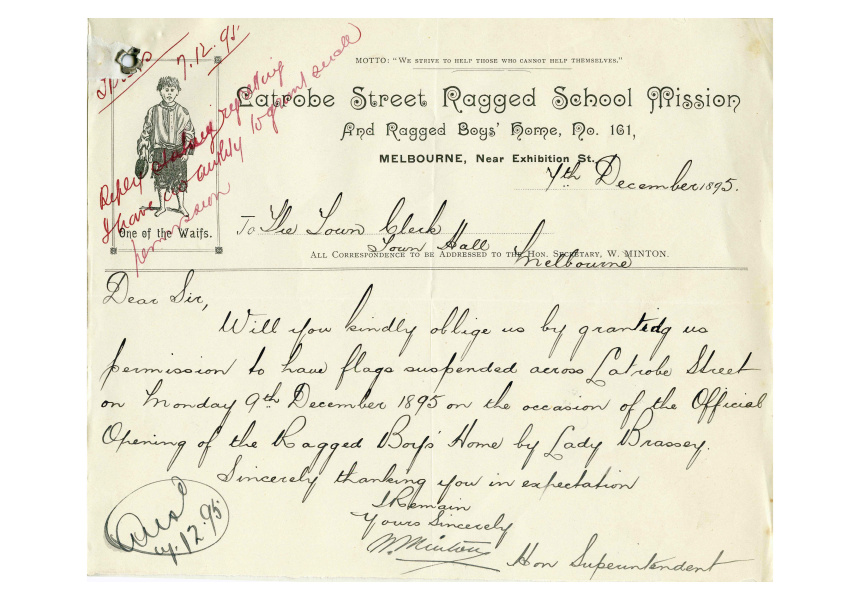 7.12.95
MOTTO: "WE STRIVE TO HELP THOSE WHO CANNOT HELP THEMSELVES."
Latrobe Street Ragged School Mission
And Ragged Boys' Home, No. 161,
MELBOURNE, Near Exhibition St.
7th December 1895.
Reply stating regretting
I have no authority to grant such
permission
One of the Waifs.
To The Town Clerk
Town Hall
Melbourne
ALL CORRESPONDENCE TO BE ADDRESSED TO THE HON. SECRETARY, W. MINTON.
Dear Sir,
Will you kindly oblige us by granting us
permission to have flags suspended across Latrobe Street
on Monday 9th December 1895 on the occasion of the Official
Opening of the Ragged Boys Home by Lady Brassey.
Sincerely thanking you in expectation
I Remain
Yours Sincerely
W. Minton
Hon Superintendent
Ansd
.12.95